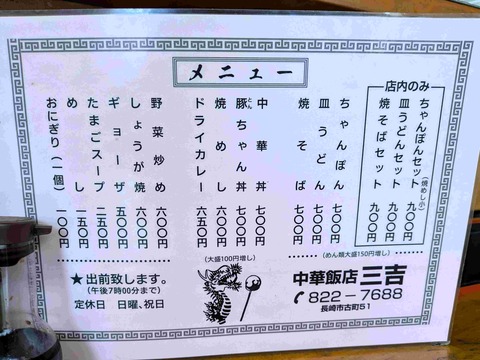 メニュー
店内のみ
ちゃんぽんセット (焼めし小) 九〇〇円
皿うどんセット 九〇〇円
焼そばセット 九〇〇円
ちゃんぽん 七〇〇円
皿うどん 七〇〇円
焼そば 七〇〇円
(めん類大盛150円増し)
中華丼 七〇〇円
豚ちゃん丼 七〇〇円
焼めし 六〇〇円
ドライカレー 六五〇円
(大盛100円増し)
野菜炒め 六〇〇円
しょうが焼 六〇〇円
ギョーザ 五〇〇円
たまごスープ 二五〇円
めし 二〇〇円
おにぎり（一個） 一〇〇円
★出前致します。
(午後7時00分まで)
定休日 日曜、祝日
中華飯店 三吉
822-7688
長崎市古町51